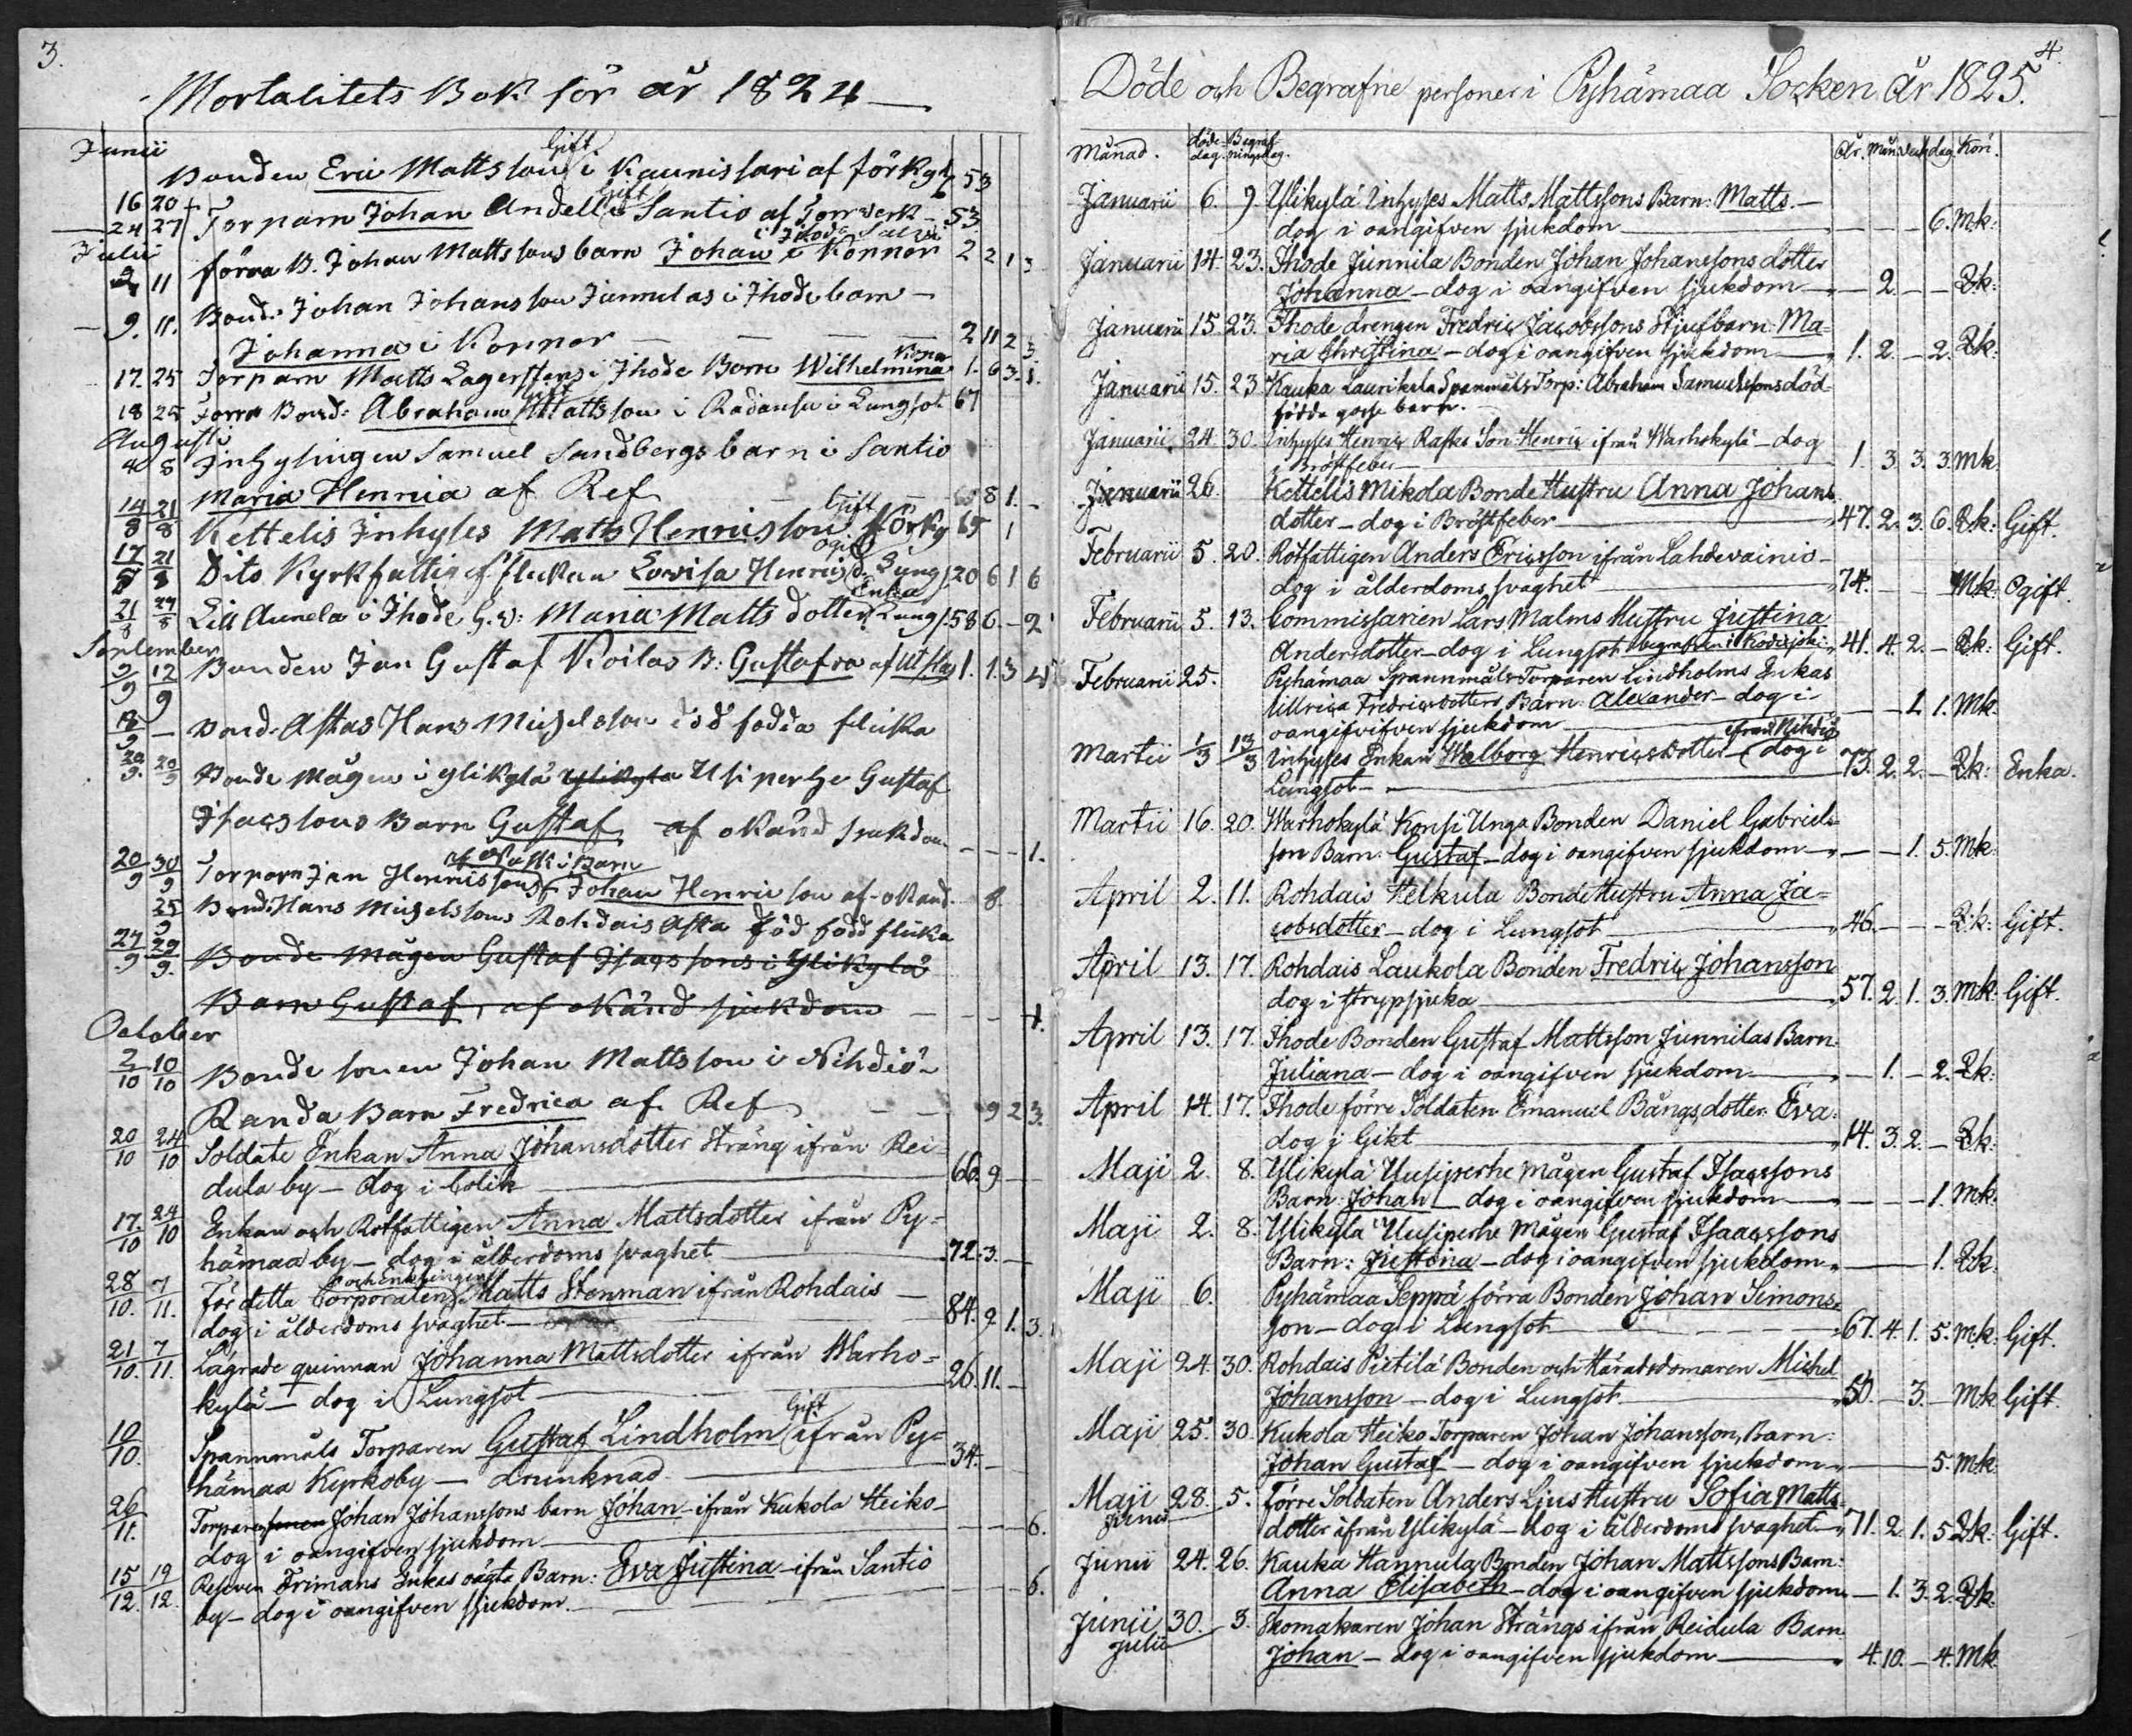 3.
Mortalitets Bok för år 1824
Junii
Gift
Bonden Eric Mattsson i Kaunissari af förkyl 53
16 20
Gift
24 27 Torparn Johan Andell i Santio af Torrverk 53
Julii
i Ihode
2 11 förra B. Johan Mattssons barn Johan i Konnor 2 2 1 3
9. 11. Bond: Johan Johansson Junnilas i Ihode barn
Johanna i Konnor 2 11 2 3.
17. 25 Torparn Matts Lagerstens i Ihode Barn Wilhelmina 1. 6 3. 1.
18 25 Förra Bond: Abraham Mattsson i Lungsot 67
Augusti
4 8 Inhysingen Samuel Sandbergs barn i Santio
Maria Hennia af Ref 8 1.
Gift
14/8 21/8 Kettelis Inhyses Matts Henricsson förky 65 1
Ogi
17/8 21/8 Dito Kyrkfattig flickan Lovisa Henricsd. Lung 20 6 1 6
Enka
21/8 27/8 Lill Aunela i Ihode G. w: Maria Matts dotter Lung 58 6. - 2
September
9 12/9 Bonden Jan Gustaf Koilas B: Gustafva af Utslag 1. 1. 3
18/9 Bond. Astas Hans Michelsson död födda flicka
20/9. 20/9 Bonde Mågen i Ylikylä Ylikylä Usiperhe Gustaf
Isacssons Barn Gustaf af okänd sjukdom 1.
20/9 30/9 Torparn Jan Henricssons Johan Henric son af okänd 8.
25 Bond: Hans Michelssons Rohdais Asta död född flicka
27/9 29/9. Bonde Mågen Gustaf Isacssons i Ylikylä
Barn Gustaf, af okänd sjukdom 1.
October
2/10 10/10 Bonde sonen Johan Mattsson i Nihdiö
Randa Barn Fredrica af Ref 9 2 3.
20/10 24/10 Soldate Enkan Anna Johansdotter Sträng ifrån Rei-
dula by - dog i Colik 66. 9
17./10 24/10 Enkan och Rotfattigen Anna Mattsdotter ifrån Py=
hämaa by - dog i ålderdoms svaghet 72. 3.
och enklingen
28/10. 7/11. För detta Corporalen Matts Stenman ifrån Rohdais
dog i ålderdoms svaghet 84. 9 1. 3.
21/10. 7/11. Lägrade quinnan Johanna Mattsdotter ifrån Warho=
kylä - dog i Lungsot 26. 11.
Gift
10/10. Spannmåls Torparen Gustaf Lindholm ifrån Py=
hämaa Kyrkoby - drunknad 34.
26/11. Torparesonen Johan Johanssons barn Johan - ifrån Kukola Heiko-
dog i oangifven sjukdom 6.
15/12. 19/12. Reserven Frimans Enkas oägta Barn: Eva Justina - ifrån Santio
by - dog i oangifven sjukdom. 6.
4.
Döde och Begrafne personer i Pyhämaa Socken År 1825.
Månad. döde dag. Begrafningsdag. År. Mån. Veck dag. Kön.
Januarii 6. 9 Ylikylä Inhyses Matts Mattssons Barn: Matts.
dog i oangifven sjukdom 6. Mk:
Januarii 14. 23. Ihode Junnila Bonden Johan Johanssons dotter
Johanna - dog i oangifven sjukdom 2. Qk:
Januarii 15. 23. Ihode drengen Fredric Jacobssons Stjufbarn: Ma=
ria Christina - dog i oangifven sjukdom 1. 2. - 2. Qk:
Januarii 15. 23 Kauka Laurikula Spanmåls Torp: Abraham Samuelssons död
födda gosse barn.
Januarii 24. 30. Inhyses Henric Rasks Son Henric ifrån Warhokylä - dog
i Bröstfeber 1. 3. 3. 3. Mk.
Januarii 26. Kettelis Mikola Bonde Hustru Anna Johans
dotter - dog i Bröstfeber 47. 2. 3. 6. Qk: Gift.
Februarii 5. 20. Rotfattigen Anders Ericsson ifrån Lahdevainio-
dog i ålderdoms svaghet 74. Mk: Ogift.
Februarii 5. 13. Commissarien Lars Malms Hustru Justina
Andersdotter - dog i Lungsot begrafven i 41. 4. 2. - Qk: Gift.
Februarii 25. Pyhämaa Spannmåls Torparen Lindholms Enkas
Ullrica Fredricsdotters Barn: Alexander - dog i
oangifvifven sjukdom 1. 1. Mk.
ifrån Nihdiö
Martii 1/3 13/3 Inhyses Enkan Walborg Henricsdotter dog i
Lungsot 73. 2. 2. - Qk: Enka.
Martii 16. 20. Warhokylä Konsi Unga Bonden Daniel Gabriels=
son Barn: Gustaf - dog i oangifven sjukdom 1. 5. Mk:
April 2. 11. Rohdais Helkula Bonde Hustru Anna Ja=
cobsdotter - dog i Lungsot 46. Qk: Gift.
April 13. 17. Rohdais Laukola Bonden Fredric Johansson
dog i strypsjuka 57. 2. 1. 3. Mk. Gift.
April 13. 17. Ihode Bonden Gustaf Mattsson Junnilas Barn.
Juliana - dog i oangifven sjukdom 1. - 2. Qk:
April 14. 17. Ihode förre Soldaten Emanuel Bångs dotter: Eva.
dog i Gikt 14. 3. 2. - Qk:
Maji 2. 8. Ylikylä Uusiperhe mågen Gustaf Isacssons
Barn: Johan - dog i oangifven sjukdom 1. Mk.
Maji 2. 8. Ylikylä Uusiperhe Mågen Gustaf Isaacssons
Barn: Justina - dog i oangifven sjukdom 1. Qk.
Maji 6. Pyhämaa Seppä förra Bonden Johan Simons=
son - dog i Lungsot 67. 4. 1. 5. Mk. Gift.
Maji 24. 30. Rohdais Pietilä Bonden och Häradsdomaren Michel
Johansson - dog i Lungsot 50. - 3. - Mk Gift.
Maji 25. 30. Kukola Heiko Torparen Johan Johansson, Barn:
Johan Gustaf - dog i oangifven sjukdom 5. Mk
Maji 28. 5. Förre Soldaten Anders Ljus Hustru Sofia Matts-
Junii dotter ifrån Ylikylä - dog i ålderdoms svaghet 71. 2. 1. 5 Qk: Gift.
Junii 24. 26. Kauka Hannula Bonden Johan Mattssons Barn:
Anna Elisabeth - dog i oangifven sjukdom 1. 3. 2. Qk.
Junii 30. 3. Skomakaren Johan Strängs ifrån Reidula Barn
Julii Johan - dog i oangifven sjukdom 4. 10. - 4. Mk.